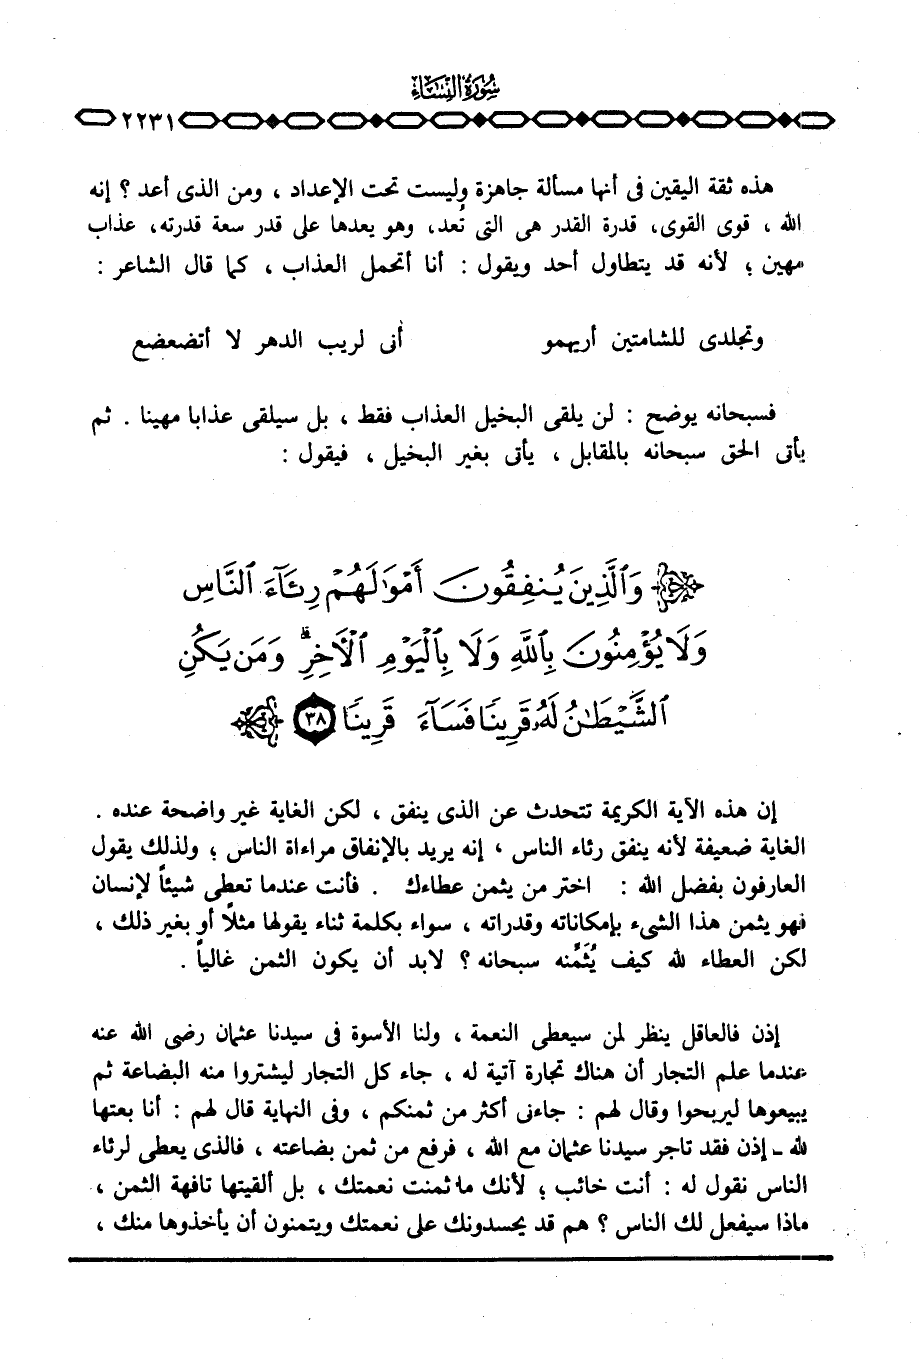 سُورَةُ النِّسَاءِ
٢٢٣١
هذه ثقة اليقين فى أنها مسألة جاهزة وليست تحت الإعداد ، ومن الذى أعد ؟ إنه
الله ، قوى القوى، قدرة القدر هى التى تُعد، وهو يعدها على قدر سعة قدرته، عذاب
مهين ؛ لأنه قد يتطاول أحد ويقول : أنا أتحمل العذاب ، كما قال الشاعر :
وتجلدى للشامتين أريهمو أنى لريب الدهر لا أتضعضع
فسبحانه يوضح : لن يلقى البخيل العذاب فقط ، بل سيلقى عذابا مهينا . ثم
يأتى الحق سبحانه بالمقابل ، يأتى بغير البخيل ، فيقول :
وَٱلَّذِينَ يُنفِقُونَ أَمْوَٰلَهُمْ رِئَآءَ ٱلنَّاسِ
وَلَا يُؤْمِنُونَ بِٱللَّهِ وَلَا بِٱلْيَوْمِ ٱلْأَخِرِ ۗ وَمَن يَكُنِ
ٱلشَّيْطَٰنُ لَهُۥ قَرِينًا فَسَآءَ قَرِينًا ٣٨
إن هذه الآية الكريمة تتحدث عن الذى ينفق ، لكن الغاية غير واضحة عنده .
الغاية ضعيفة لأنه ينفق رئاء الناس ، إنه يريد بالإنفاق مراءاة الناس ؛ ولذلك يقول
العارفون بفضل الله : اختر من يثمن عطاءك . فأنت عندما تعطى شيئاً لإنسان
فهو يثمن هذا الشىء بإمكاناته وقدراته ، سواء بكلمة ثناء يقولها مثلًا أو بغير ذلك ،
لكن العطاء لله كيف يُثَمِّنه سبحانه ؟ لابد أن يكون الثمن غالياً .
إذن فالعاقل ينظر لمن سيعطى النعمة ، ولنا الأسوة فى سيدنا عثمان رضى الله عنه
عندما علم التجار أن هناك تجارة آتية له ، جاء كل التجار ليشتروا منه البضاعة ثم
يبيعوها ليربحوا وقال لهم : جاءنى أكثر من ثمنكم ، وفى النهاية قال لهم : أنا بعتها
لله ـ إذن فقد تاجر سيدنا عثمان مع الله ، فرفع من ثمن بضاعته ، فالذى يعطى لرئاء
الناس نقول له : أنت خائب ؛ لأنك ما ثمنت نعمتك ، بل ألقيتها تافهة الثمن ،
ماذا سيفعل لك الناس ؟ هم قد يحسدونك على نعمتك ويتمنون أن يأخذوها منك ،